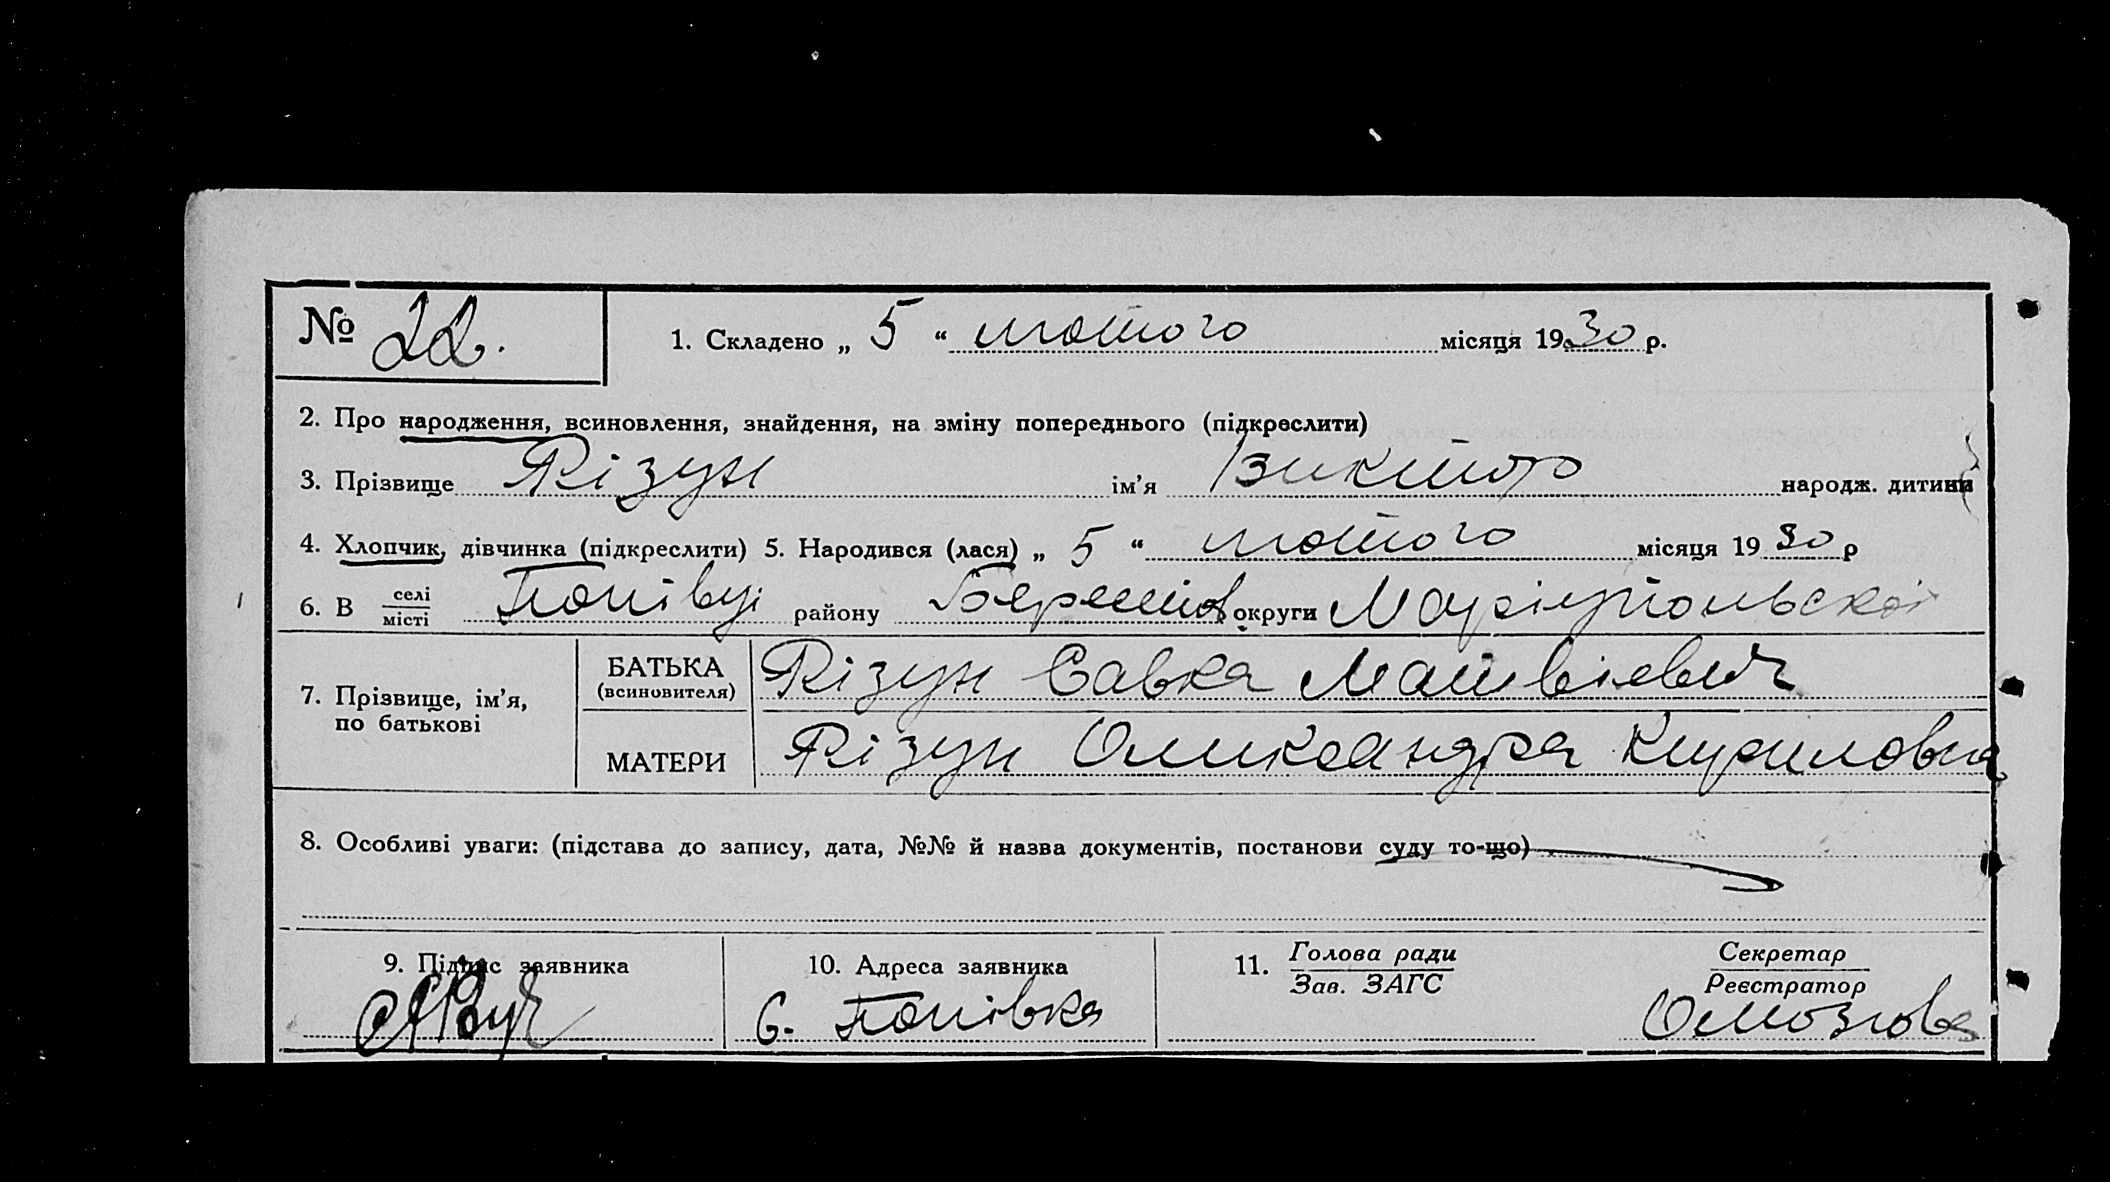 № 22.
1. Складено „ 5 “ лютого місяця 1930 р.
2. Про народження, всиновлення, знайдення, на зміну попереднього (підкреслити)
3. Прізвище Різун ім’я Виктор народж. дитини
4. Хлопчик, дівчинка (підкреслити) 5. Народився (лася) „ 5 “ лютого місяця 1930 р
6. В селі/місті Попівці району округи Маріупольскої
7. Прізвище, ім’я, по батькові
БАТЬКА (всиновителя) Різун Савка Матвієвич
МАТЕРИ Різун Олександра Кириловна
8. Особливі уваги: (підстава до запису, дата, №№ й назва документів, постанови суду то-що)
9. Підпис заявника
10. Адреса заявника
с. Попівка
11. Голова ради
Зав. ЗАГС
Секретар
Реєстратор